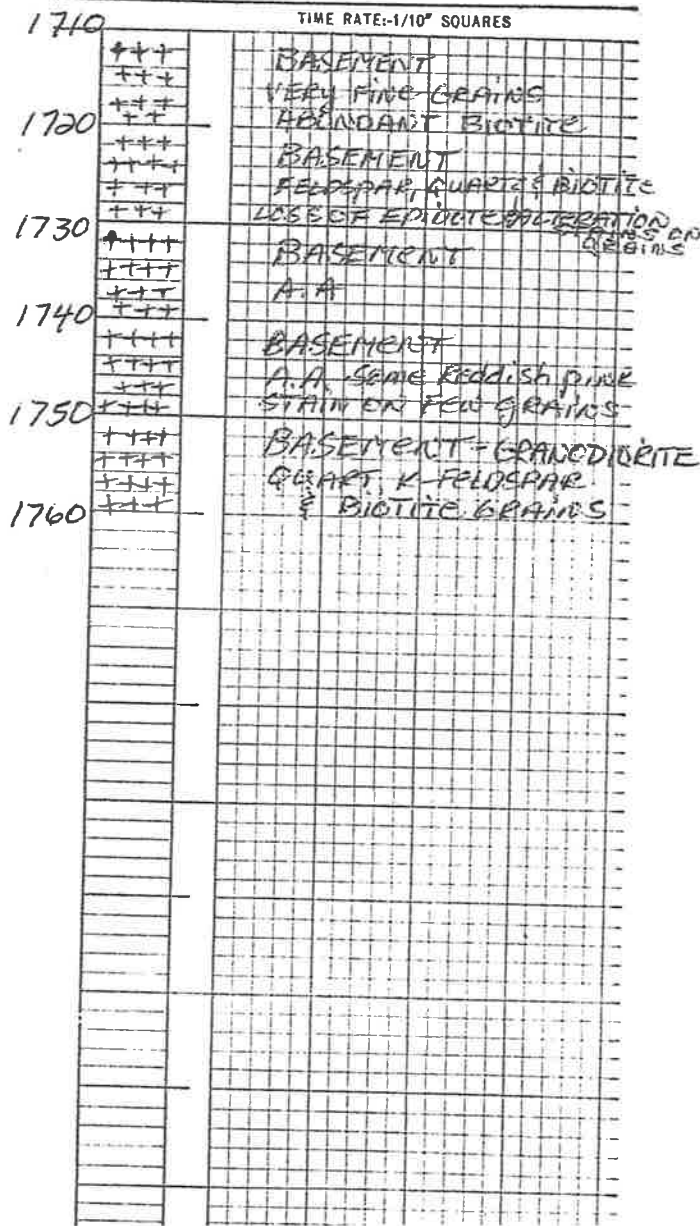 TIME RATE:-1/10" SQUARES
1710
BASEMENT
VERY FINE GRAINS
1720
ABUNDANT BIOTITE
BASEMENT
FELDSPAR, QUARTZ & BIOTITE
LOSS OF EPIDOTE ALTERATION
STAINS ON
GRAINS
1730
BASEMENT
A.A
1740
BASEMENT
A.A. SOME Reddish pink
1750
STAIN ON FEW GRAINS
BASEMENT - GRANODIORITE
QUART, K-FELDSPAR
& BIOTITE GRAINS
1760